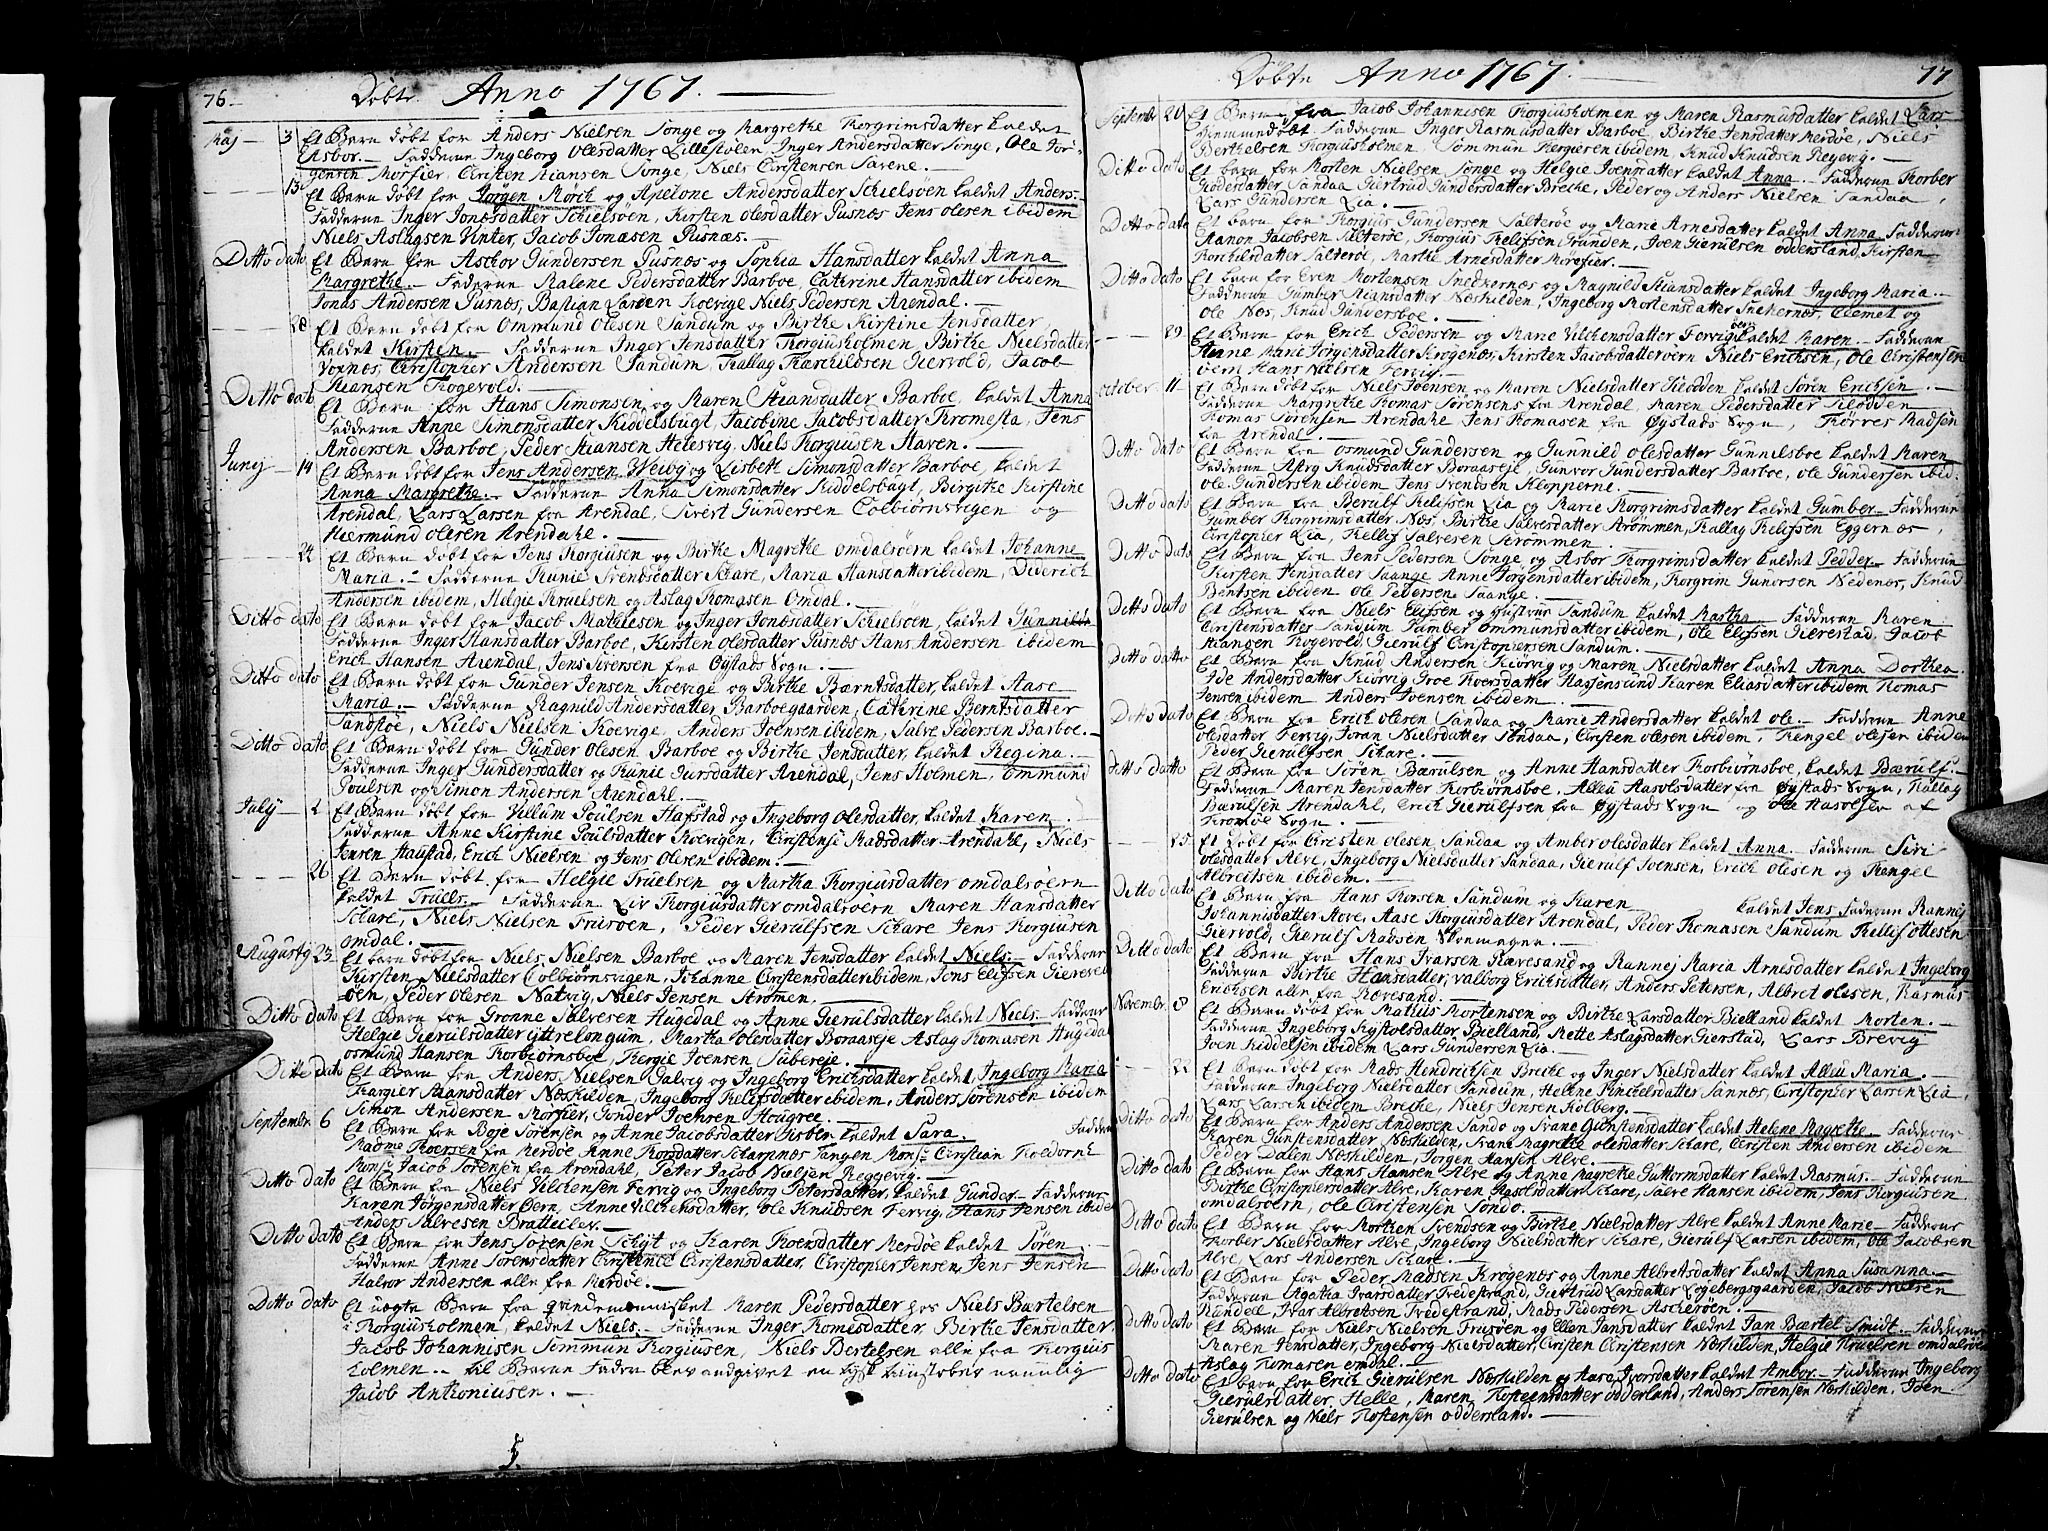 76.
Döbte Anno 1767.
Maj 3 Et Barn döbt for Anders Nielsen Songe og Margrethe Thorgrimsdatter kaldet
Asbor. Fadderne Ingeborg Olesdatter Lillestölen, Inger Andersdatter Songe, Ole Jör-
gensen Morfier, Christen Stiansen Songe, Niels Christensen
13 Et Barn döbt for Jörgen Mörch og Apelone Andersdatter Schielsöen kaldet Anders.
Fadderne Inger Jonæsdatter Schielsöen, Kirsten Olesdatter Pusnæs Jens Olesen ibidem
Niels Aslagsen Vinter, Jacob Jonæsen Pusnæs.
Ditto dato Et Barn for Aschov Gundersen Pusnæs og Sophia Hansdatter kaldet Anna
Margrethe. Fadderne Malene Pedersdatter Barboe, Cathrine Hansdatter ibidem
Jonas Andersen Pusnæs, Bastian Larsen Koevige Niels Pedersen Arendal.
28 Et Barn döbt for Ommund Olesen Sandum og Birthe Kirstine Jensdatter,
kaldet Kirsten. Fadderne Inger Jensdatter Thorgiusholmen, Birthe Nielsdatter
Voxnæs, Christopher Andersen Sandum, Thallag Tharchildsen Giervold, Jacob
Stiansen Rogevold.
Ditto dato Et Barn for Hans Simonsen og Maren Stiansdatter Barboe, kaldet Anna
Fadderne Anne Simonsdatter Kiddelsbugt, Jacobine Jacobsdatter Tromesta, Jens
Andersen Barboe, Peder Stiansen Helesvig, Niels Thorgiusen Haven.
Junij 14 Et Barn döbt for Jens Andersen Weiby og Lisbeth Simonsdatter Barboe, kaldet
Anna Margrethe. Fadderne Anna Simonsdatter Kiddelsbugt, Birgithe Kirstine
Arendal, Lars Larsen fra Arendal, Sivert Gundersen Colbiörnsvigen og
Hiermund Olesen Arendahl.
24 Et Barn döbt for Jens Thorgiusen og Birthe Magrethe Omdalsöern kaldet Johanne
Maria. Fadderne Thunie Svendsdatter Schare, Maria Hansdatter ibidem, Diderich
Andersen ibidem, Helgie Truelsen og Aslag Thomasen Omdal.
Ditto dato Et Barn döbt for Jacob Mathiesen og Inger Jonæsdatter Schielsöen, kaldet Gunnilde
Fadderne Inger Hansdatter Barboe, Kirsten Olesdatter Pusnæs Hans Andersen ibidem
Erich Hansen Arendal, Jens Siversen fra Öystads Sogn.
Ditto dato Et Barn döbt for Gunder Jensen Koevige og Birthe Bærntsdatter, kaldet Aase
Maria. Fadderne Ragnild Andersdatter Barboegaarden, Cathrine Berntsdatter
Sandstöe, Niels Nielsen Koevige, Anders Joensen ibidem, Salve Pedersen Barboe.
Ditto dato Et Barn döbt for Gunder Olesen Barboe og Birthe Jensdatter, kaldet Regina.
Fadderne Inger Gundersdatter og Thunie Jursdatter Arendal, Jens Holmen, Ommund
Poulsen og Simon Andersen Arendahl.
July 2 Et Barn döbt for Villum Poulsen Hafstad og Ingeborg Olesdatter, kaldet Karen
Fadderne Anne Kirstine Poulsdatter Koevigen, Christense Madsdatter Arendahl, Niels
Jensen Haustad, Erich Nielsen og Jens Olesen ibidem.
26 Et Barn döbt for Helgie Truelsen og Martha Thorgiusdatter Omdalsöern
kaldet Truels. Fadderne Liv Thorgiusdatter Omdalsöern Maren Hansdatter
Schare, Niels Nielsen Trusöen, Peder Gierulfsen Schare Jens Thorgiusen
Omdal.
Augusty 23 Et barn döbt for Niels Nielsen Barboe og Maren Jensdatter kaldet Niels. Fadderne
Kirsten Nielsdatter Colbiörnsvigen, Johanne Christensdatter ibidem, Jens Elifsen Gierevel
öen, Peder Olesen Natvig, Niels Jensen Strömen.
Ditto dato Et Barn for Gronne Salvesen Hugedal og Anne Gierulsdatter kaldet Niels. Faddere
Helgie Gierulsdatter Yttrelongum, Martha Olesdatter Boraaseje Aslag Thomasen Hugidal
Osmund Hansen Torbiörnsboe, Tergie Joensen Subereje.
Ditto dato Et Barn fra Anders Nielsen Galvig og Ingeborg Erichsdatter kaldet, Ingeborg Maria
Thorgier Stiansdatter Næskilden, Ingeborg Thelifsdatter ibidem, Anders Sörensen ibidem
Simon Andersen Morfier, Gunder Joensen Hougree.
September 6 Et Barn for Boje Sörensen og Anne Jacobsdatter Gisben kaldet Sara. Faddere
Madme Thoersen fra Merdöe Anne Thorsdatter Scharpnæs Tangen Monsr Christian Koldorne
Monsr Jacob Sörensen fra Arendahl, Peter Jacob Nielsen Reggevig.
Ditto dato Et Barn fra Niels Vilchensen Fervig og Ingeborg Petersdatter, kaldet Gunder. Fadderne
Karen Jörgensdatter Öern, Anne Vilchensdatter, Ole Knudsen Fervig, Hans Jensen ibide
Anders Salvesen Bratteilev.
Ditto dato Et Barn for Jens Sörensen Schyt og Karen Thoersdatter Merdöe kaldet Sören.
Fadderne Anne Sörensdatter Christence Christensdatter, Christopher Jensen, Jens Jensen
Halvor Andersen alle fra Merdöe.
Ditto dato Et uægte Barn fra Qvindemennisket Maren Pedersdatter hos Niels Bartelsen
i Thorgiusholmen, kaldet Niels. Fadderne Inger Thomesdatter, Birthe Jensdatter,
Jacob Johannisen Sommun Thorgiusen, Niels Bertelsen alle fra Thorgius
holmen. til Barne Fader blev andgivet en tysk nemlig
Jacob Anthoniusen.
Döbte Anno 1767. 77
September 20 Et Barn fra Jacob Johannisen Thorgiusholmen og Maren Rasmusdatter kaldet Lars
hjemmedöbt Fadderne Inger Rasmusdatter Barboe, Birthe Jensdatter Merdöe, Niels
Berthelsen Thorgiusholmen, Sommun Thorgiusen ibidem, Knud Knudsen Regevig.
Ditto dato Et barn for Morten Nielsen Songe og Helgie Joensdatter kaldet Anna. Fadderne Thorber
Sandaa Giertrud Gundersdatter Breche, Peder og Anders Nielsen Sandaa,
Lars Gundersen Lia.
Ditto dato Et barn for Thorgius Gundersen Salteröe og Marie Arnesdatter kaldet Anna Fadderne
Manon Jacobsen Salteröe, Thorgius Thelifsen Grunden, Joen Gierulsen Oddersland, Kirsten
Torchilsdatter Salteröe, Marthe Arnesdatter Morefier.
Ditto dato Et barn for Even Mortensen Snekkernæs og Magnild Stiansdatter kaldet Ingeborg Maria.
Fadderne Gumber Stiansdatter Næskilden, Ingeborg Mortensdatter Snekernæs, Clemet og
Ole Næs, Knud Gundersboe.
29 Et Barn for Erich Pedersen og Marie Vilchensdatter Fervig kaldet Karen. Fadderne
Anne Marie Jörgensdatter Krogenæs, Kirsten Jacobsdatter Öern Niels Erichsen, Ole Christensen
Öern Hans Nielsen Fervig.
October 11 Et Barn döbt for Niels Joensen og Maren Nielsdatter Slodden kaldet Sören Erichsen.
Fadderne Margrethe Thomas Sörensens fra Arendal, Maren Pedersdatter Slodden
Thomas Sörensen Arendahl Jens Thomasen fra Öystads Sogn, Thorres Madsen
fra Arendal.
Ditto dato Et Barn for Osmund Gundersen og Gunnild Olesdatter Gunnelsboe kaldet Karen
Fadderne Astry Knudsdatter Boraaseje, Gunvor Gundersdatter Barboe, Ole Gundersen ibid.
Ole Gundersen ibidem Jens Svendsen Klopperne.
Ditto dato Et Barn fra Berulf Thelifsen Lia og Marie Thorgrimsdatter kaldet Gumber. Fadderne
Gumber Thorgrimsdatter Næs, Birthe Salvesdatter Strömmen, Thallag Thelifsen Eggernæs,
Christopher Lia, Thellif Salvesen Strömmen.
Ditto dato Et Barn fra Jens Pedersen Songe og Asbor Thorgrimsdatter kaldet Pedder. Fadderne
Kirsten Jensdatter Saange Anne Jörgensdatter ibidem, Torgrim Gunorsen Nedenæs, Knud
Bentsen ibidem Ole Pedersen Saange.
Ditto dato Et Barn fra Niels Elifsen og Hustrue Sandum kaldet Martha Fadderne Maren
Christensdatter Sandum Gumber Ommunsdatter ibidem, Ole Elifsen Gierestad, Jacob
Stiansen Rogevold, Gierulf Christophersen Sandum.
Ditto dato Et Barn fra Knud Andersen Kiörvig og Maren Nielsdatter kaldet Anna Dorthea.
Ide Andersdatter Kiörvig Groe Thoersdatter Hassensund Karen Eliasdatter ibidem Thomas
Jensen ibidem Anders Joensen ibidem.
Ditto dato Et Barn fra Erich Olesen Sandaa og Marie Andersdatter kaldet Ole. Fadderne Anne
Olesdatter Fervig, Joran Nielsdatter Sandaa, Christen Olesen ibidem, Thengel Olesen ibidem
Peder Gierulfsen Schare.
Ditto dato Et Barn fra Sören Bærulsen og Anne Hansdatter Torbiörnsboe, kaldet Bærulf.
Fadderne Maren Jensdatter Torbiörnsboe, Alleu Hasolsdatter fra Öystads Sogn, Thallag
Bærulsen Arendahl, Erich Gierulfsen fra Öystads Sogn og Ole Hasolsen af
Tromöe Sogn.
25 Et Döbt for Christen Olesen Sandaa og Amber Olesdatter kaldet Anna. Fadderne Siri
Olesdatter Alve, Ingeborg Nielsdatter Sandaa, Gierulf Joensen, Erich Olesen og Thengel
Albretsen ibidem.
Ditto dato Et Barn fra Hans Thorsen Sandum og Karen kaldet Jens Fadderne Rannej
Johannisdatter Hove, Aase Thorgiusdatter Arendal, Peder Thomasen Sandum Thellif Ottesen
Giervold, Gierulf Madsen Skoemager.
Ditto dato Et Barn fra Hans Ivarsen Revesand og Runnej Maria Arnesdatter kaldet Ingeborg
Fadderne Birthe Hansdatter, Valborg Erichsdatter, Anders Petersen, Albret Olesen, Rasmus
Erichsen alle fra Revesand.
Novembr. 8 Et Barn döbt for Mathis Mortensen og Birthe Larsdatter Bielland kaldet Morten.
Fadderne Ingeborg Bielland, Mette Aslagsdatter Gierstad, Lars Brevig
Joen Kiddelsen ibidem Lars Gundersen Lia.
22 Et Barn for Mads Hendrichsen Breche og Inger Nielsdatter kaldet Alleu Maria.
Fadderne Ingeborg Nielsdatter Sandum, Helene Sannæs, Christopher Larsen Lia,
Lars Larsen ibidem Breche, Niels Jensen Kolberg.
Ditto dato Et Barn for Anders Andersen Sando og Svane Gunstensdatter kaldet Helene Magrethe. Fadderne
Karen Gunstensdatter Næskilden, Svane Magrethe Olesdatter Schare, Christen Andersen ibidem
Peder Dalen Næskilden, Jörgen Hansen Alve.
Ditto dato Et Barn for Hans Hansen Alve og Anne Magrethe Guttormsdatter kaldet Rasmus. Fadderne
Birthe Christophersdatter Alve, Karen Schare, Salve Hansen ibidem, Jens Thorgiusen
Omdalsöern, Ole Christensen Sondo.
Ditto dato Et Barn for Morthen Svendsen og Birthe Nielsdatter Alve kaldet Anne Marie. Fadderne
Thorber Nielsdatter Alve, Ingeborg Nielsdatter Schare, Gierulf Larsen ibidem, Ole Jacobsen
Alve, Lars Andersen Schare.
Ditto dato Et Barn for Peder Madsen Krogenæs og Anne Albretsdatter kaldet Anna Susanna.
Fadderne Agatha Ivarsdatter Tvedestrand, Giertrud Larsdatter Logebergsgaarden, Jacob Nielsen
Rundell, Ivar Albretsen Tvedestrand, Mads Pedersen Ascheröen.
Ditto dato Et Barn for Niels Nielsen Trusöen og Ellen Jansdatter kaldet Jan Bærtel Smidt. Fadderne
Maren Jensdatter, Ingeborg Nielsdatter, Christen Christensen Næskilden, Helgie Truelsen Omdalsöe
Aslag Thomasen Omdal.
Ditto dato Et barn for Erich Gierulsen Næskilden og Aase Iversdatter kaldet Ambor. Fadderne Ingeborg
Gierulsdatter, Helle, Maren Thosteensdatter Odderland, Anders Sörensen Næskilden, Joen
Gierulsen og Niels Thostensen Oddersland.